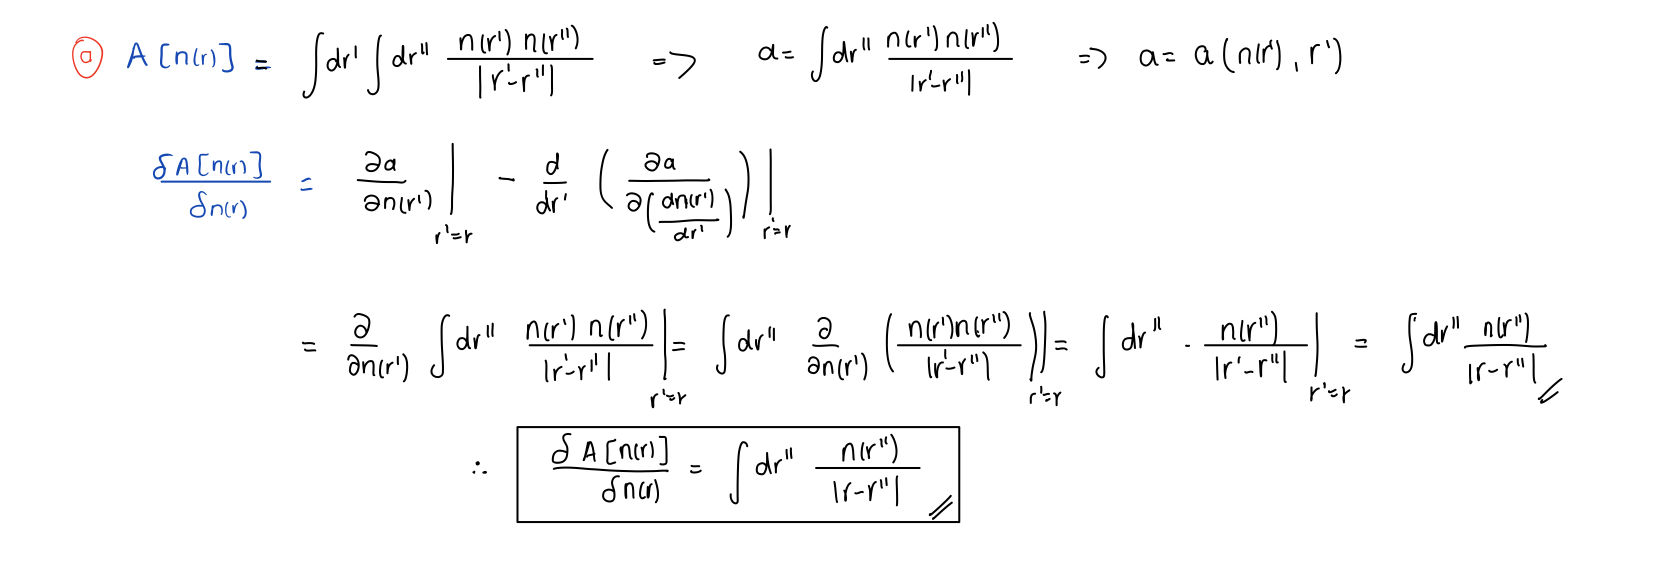 ⓐ A[n(r)] = ∫dr' ∫dr'' n(r') n(r'') / |r'-r''| => a = ∫dr'' n(r')n(r'') / |r'-r''| => a = a(n(r'), r')
δA[n(r)] / δn(r) = ∂a / ∂n(r') |_{r'=r} - d/dr' ( ∂a / ∂(dn(r')/dr') ) |_{r'=r}
= ∂/∂n(r') ∫dr'' n(r') n(r'') / |r'-r''| |_{r'=r} = ∫dr'' ∂/∂n(r') ( n(r')n(r'') / |r'-r''| ) |_{r'=r} = ∫dr'' · n(r'') / |r'-r''| |_{r'=r} = ∫dr'' n(r'') / |r-r''| //
∴ δA[n(r)] / δn(r) = ∫dr'' n(r'') / |r-r''| //